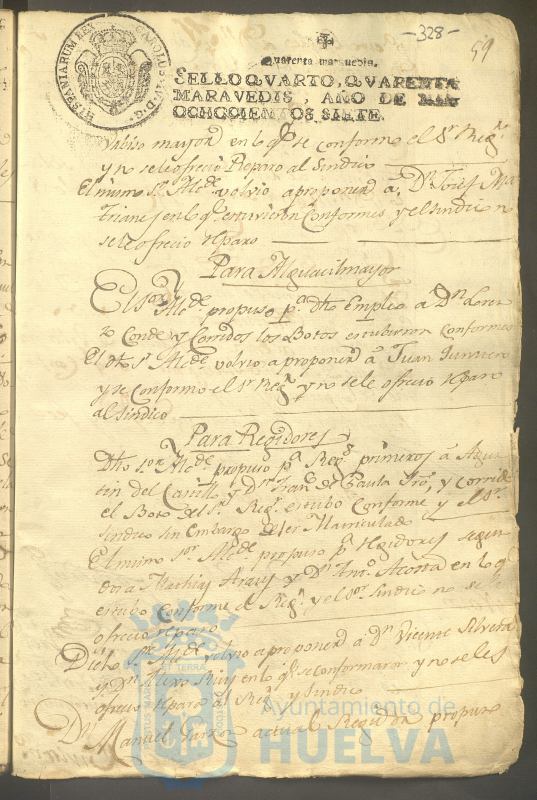 -328-
59
HISPANIARUM REX CAROLUS IV D.G.
Quarenta maravedis.
SELLO QVARTO, QVARENTA
MARAVEDIS, AÑO DE MIL
OCHOCIENTOS SIETE.
mayor en lo q.e se conformo el S.r Reg.r
y no se le ofrecio Reparo al Sindico
El mismo S.r Alc.de volvio a proponer a D.n Josef Ma
en lo q.e estuvieron Conformes y el Sindico no
se le ofrecio reparo
Para Alguacil mayor
El S.or Alc.de propuso p.a dho Empleo a D.n Loren
zo Conde y Corridos los Botos estubieron conformes
El dho S.r Alc.de volvio a proponer a Juan
y se conformo el S.r Reg.r y no se le ofrecio reparo
al Sindico
Para Regidores
Dho S.or Alc.de propuso p.a Reg.s primeros a Agus
tin del Castillo y D.n Fran.co de Paula y Corrido
el Boto del S.r Reg.r estubo Conforme y el S.r
Sindico sin Embargo de ser Matriculado
El mismo S.or Alc.de propuso p.a Regidores segun
dos a Mathias Arais y D.n Ant.o Acosta en lo q.e
estubo Conforme el Reg.r y el S.or Sindico no se le
ofrecio reparo
Dicho S.r Alc.de volvio a proponer a D.n Vicente Silvera
y D.n Ruiz en lo q.e se conformaron y no se les
ofrecio reparo al Reg.r y Sindico
D.n Manuel Garzon actual Regidor propuso
Ayuntamiento de
HUELVA